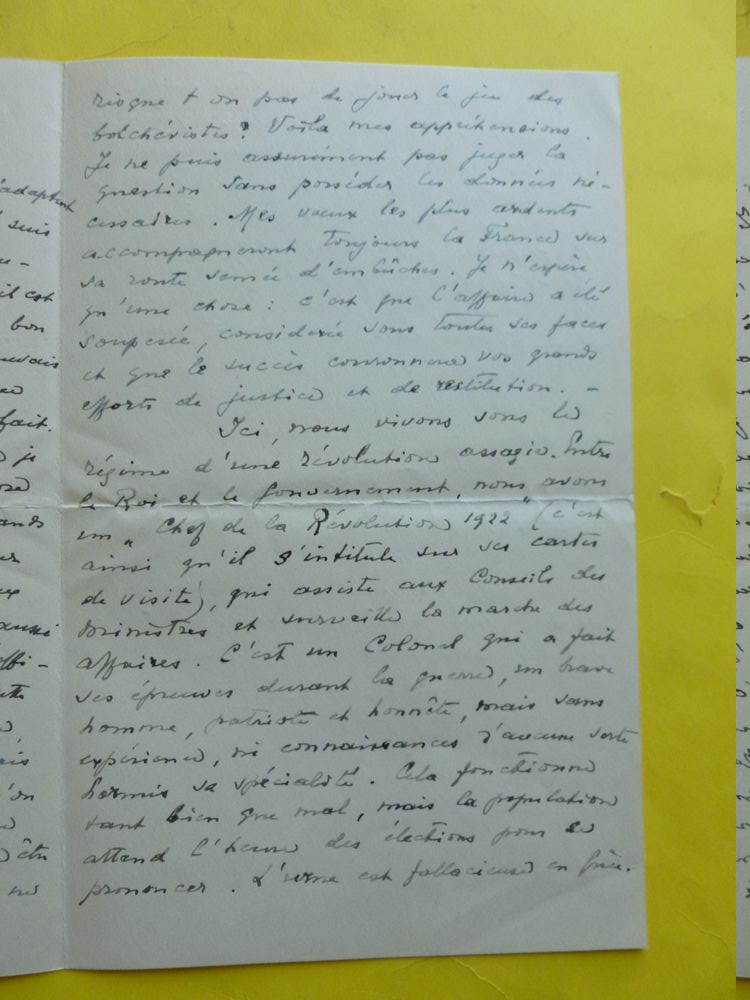 risque t on pas de jouer le jeu des
bolchévistes? Voilà mes appréhensions.
Je ne puis assurément pas juger la
question sans posséder les données né-
cessaires. Mes vœux les plus ardents
accompagneront toujours la France sur
sa route semée d'embûches. Je n'espère
qu'une chose: c'est que l'affaire a été
soupesée, considérée sous toutes ses faces
et que le succès couronnera vos grands
efforts de justice et de restitution. -
Ici, nous vivons sous le
régime d'une révolution assagie. Entre
le Roi et le Gouvernement, nous avons
un „Chef de la Révolution 1922" (c'est
ainsi qu'il s'intitule sur ses cartes
de visite), qui assiste aux Conseils des
Ministres et surveille la marche des
affaires. C'est un Colonel qui a fait
ses épreuves durant la guerre, un brave
homme, patriote et honnête, mais sans
expérience, ni connaissances d'aucune sorte
hormis sa spécialité. Cela fonctionne
tant bien que mal, mais la population
attend l'heure des élections pour se
prononcer. L'urne est fallacieuse en Grèce.
adaptent
suis
il est
bon
fait.
je
aussi
être
ne